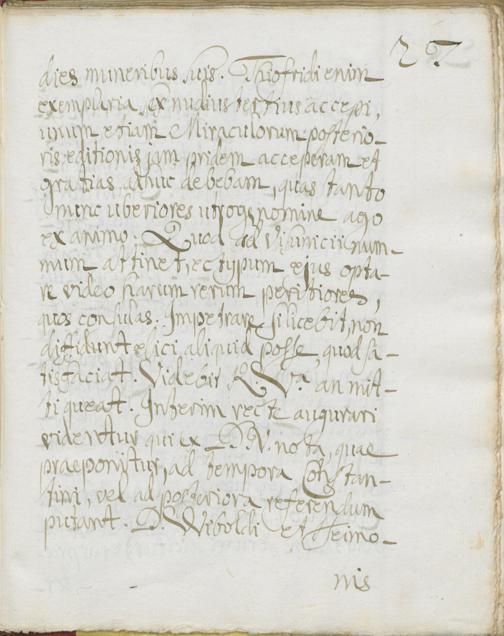 27
dies muneribus suis. Thiofridi enim
exemplaria ex nudius tertius accepi,
unum etiam Miraculorum posterio-
ris editionis jam pridem acceperam et
gratias adhuc debebam, quas tanto
nunc uberiores utroque nomine ago
ex animo. Quod ad Vimicii num-
mum attinet, ectypum ejus opta-
re video harum rerum peritiores,
quos consulas. Impetrare si licebit, non
diffidunt elici aliquid posse, quod sa-
tisfaciat. Videbit R. Vª. an mit-
ti queat. Interim recte augurari
videntur qui ex D. N. nota, quae
praeponitur, ad tempora Constan-
tini, vel ad posteriora referendum
putant. D. Wiboldi et Heimo-
nis